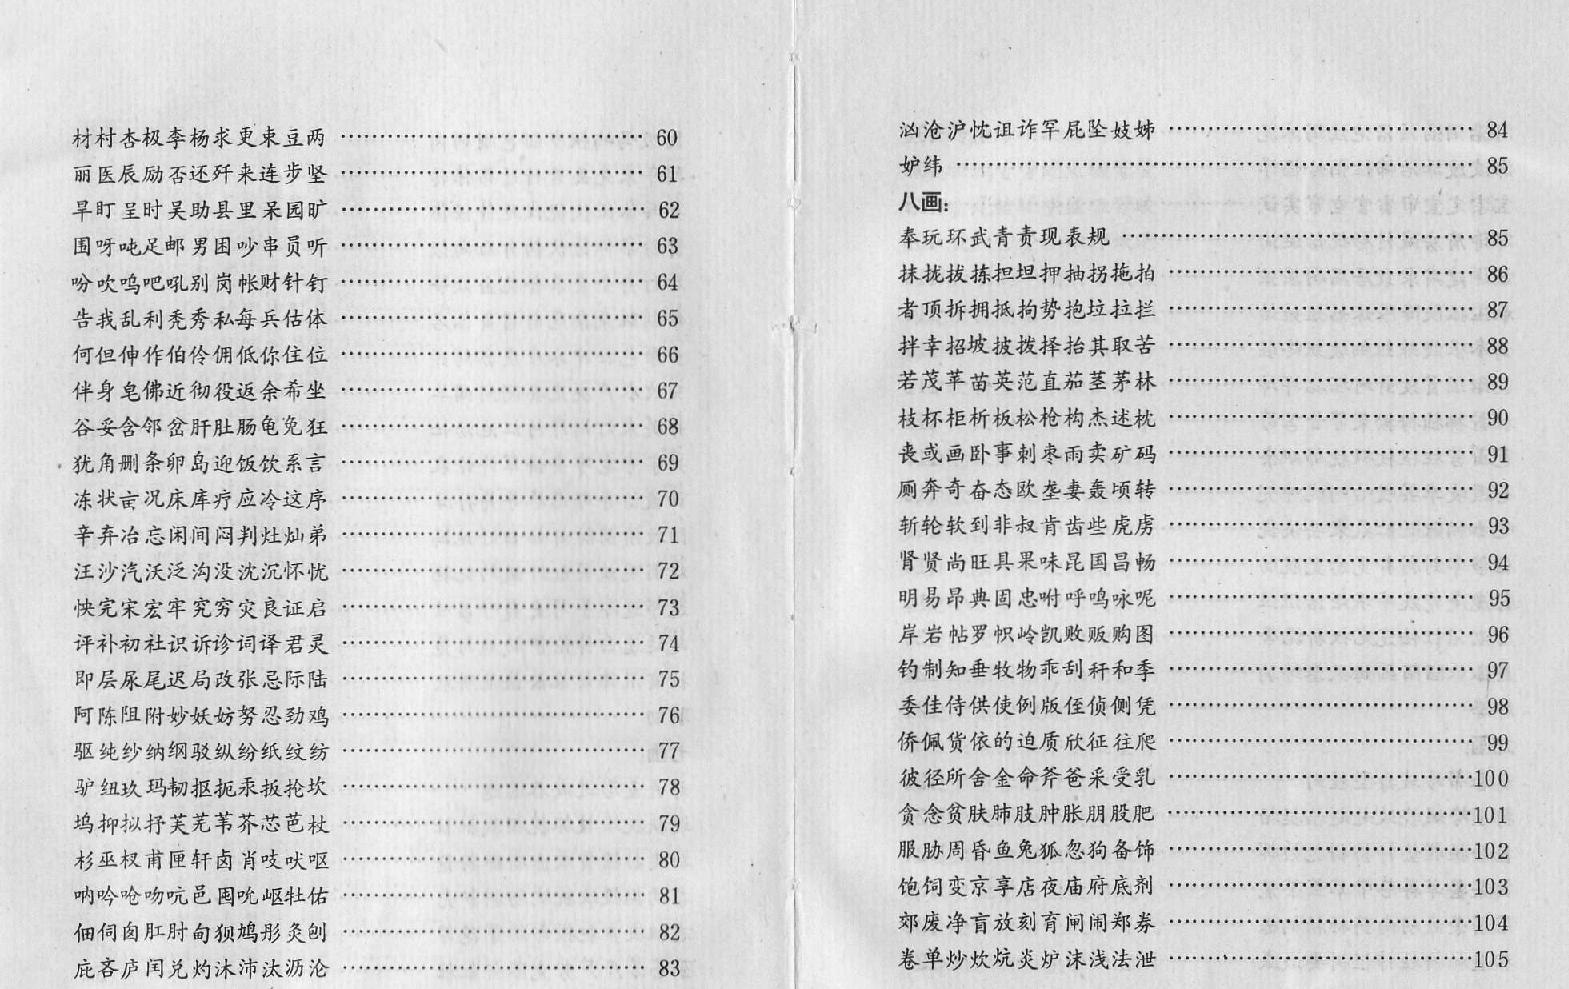 材村杏极李杨求更束豆两 60
丽医辰励否还歼来连步坚 61
旱盯呈时吴助县里呆园旷 62
围呀吨足邮男困吵串员听 63
吩吹呜吧吼别岗帐财针钉 64
告我乱利秃秀私每兵估体 65
何但伸作伯伶佣低你住位 66
伴身皂佛近彻役返余希坐 67
谷妥含邻岔肝肚肠龟免狂 68
犹角删条卵岛迎饭饮系言 69
冻状亩况床库疗应冷这序 70
辛弃冶忘闲间闷判灶灿弟 71
汪沙汽沃泛沟没沈沉怀忧 72
快完宋宏牢究穷灾良证启 73
评补初社识诉诊词译君灵 74
即层尿尾迟局改张忌际陆 75
阿陈阻附妙妖妨努忍劲鸡 76
驱纯纱纳纲驳纵纷纸纹纺 77
驴纽玖玛韧抠扼汞扳抡坎 78
坞抑拟抒芙芜苇芥芯芭杖 79
杉巫杈甫匣轩卤肖吱吠呕 80
呐吟呛吻吭邑囤吮岖牡佑 81
佃伺囱肛肘甸狈鸠彤灸刨 82
庇吝庐闰兑灼沐沛汰沥沦 83
汹沧沪忱诅诈罕屁坠妓姊 84
妒纬 85
八画：
奉玩环武青责现表规 85
抹拢拔拣担坦押抽拐拖拍 86
者顶拆拥抵拘势抱垃拉拦 87
拌幸招坡披拨择抬其取苦 88
若茂苹苗英范直茄茎茅林 89
枝杯柜析板松枪构杰述枕 90
丧或画卧事刺枣雨卖矿码 91
厕奔奇奋态欧垄妻轰顷转 92
斩轮软到非叔肯齿些虎虏 93
肾贤尚旺具果味昆国昌畅 94
明易昂典固忠咐呼鸣咏呢 95
岸岩帖罗帜岭凯败贩购图 96
钓制知垂牧物乖刮秆和季 97
委佳侍供使例版侄侦侧凭 98
侨佩货依的迫质欣征往爬 99
彼径所舍金命斧爸采受乳 100
贪念贫肤肺肢肿胀朋股肥 101
服胁周昏鱼兔狐忽狗备饰 102
饱饲变京享店夜庙府底剂 103
郊废净盲放刻育闸闹郑券 104
卷单炒炊炕炎炉沫浅法泄 105